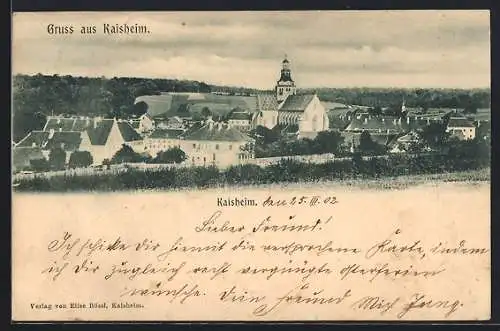 Gruss aus Kaisheim.
Kaisheim. den 25. III. 02
Lieber Freund!
Ich schicke Dir hiermit die versprochene Karte, indem
ich Dir zugleich recht vergnügte Osterferien
wünsche. Dein Freund Mich Jung.
Verlag von Elise Rössl, Kaisheim.